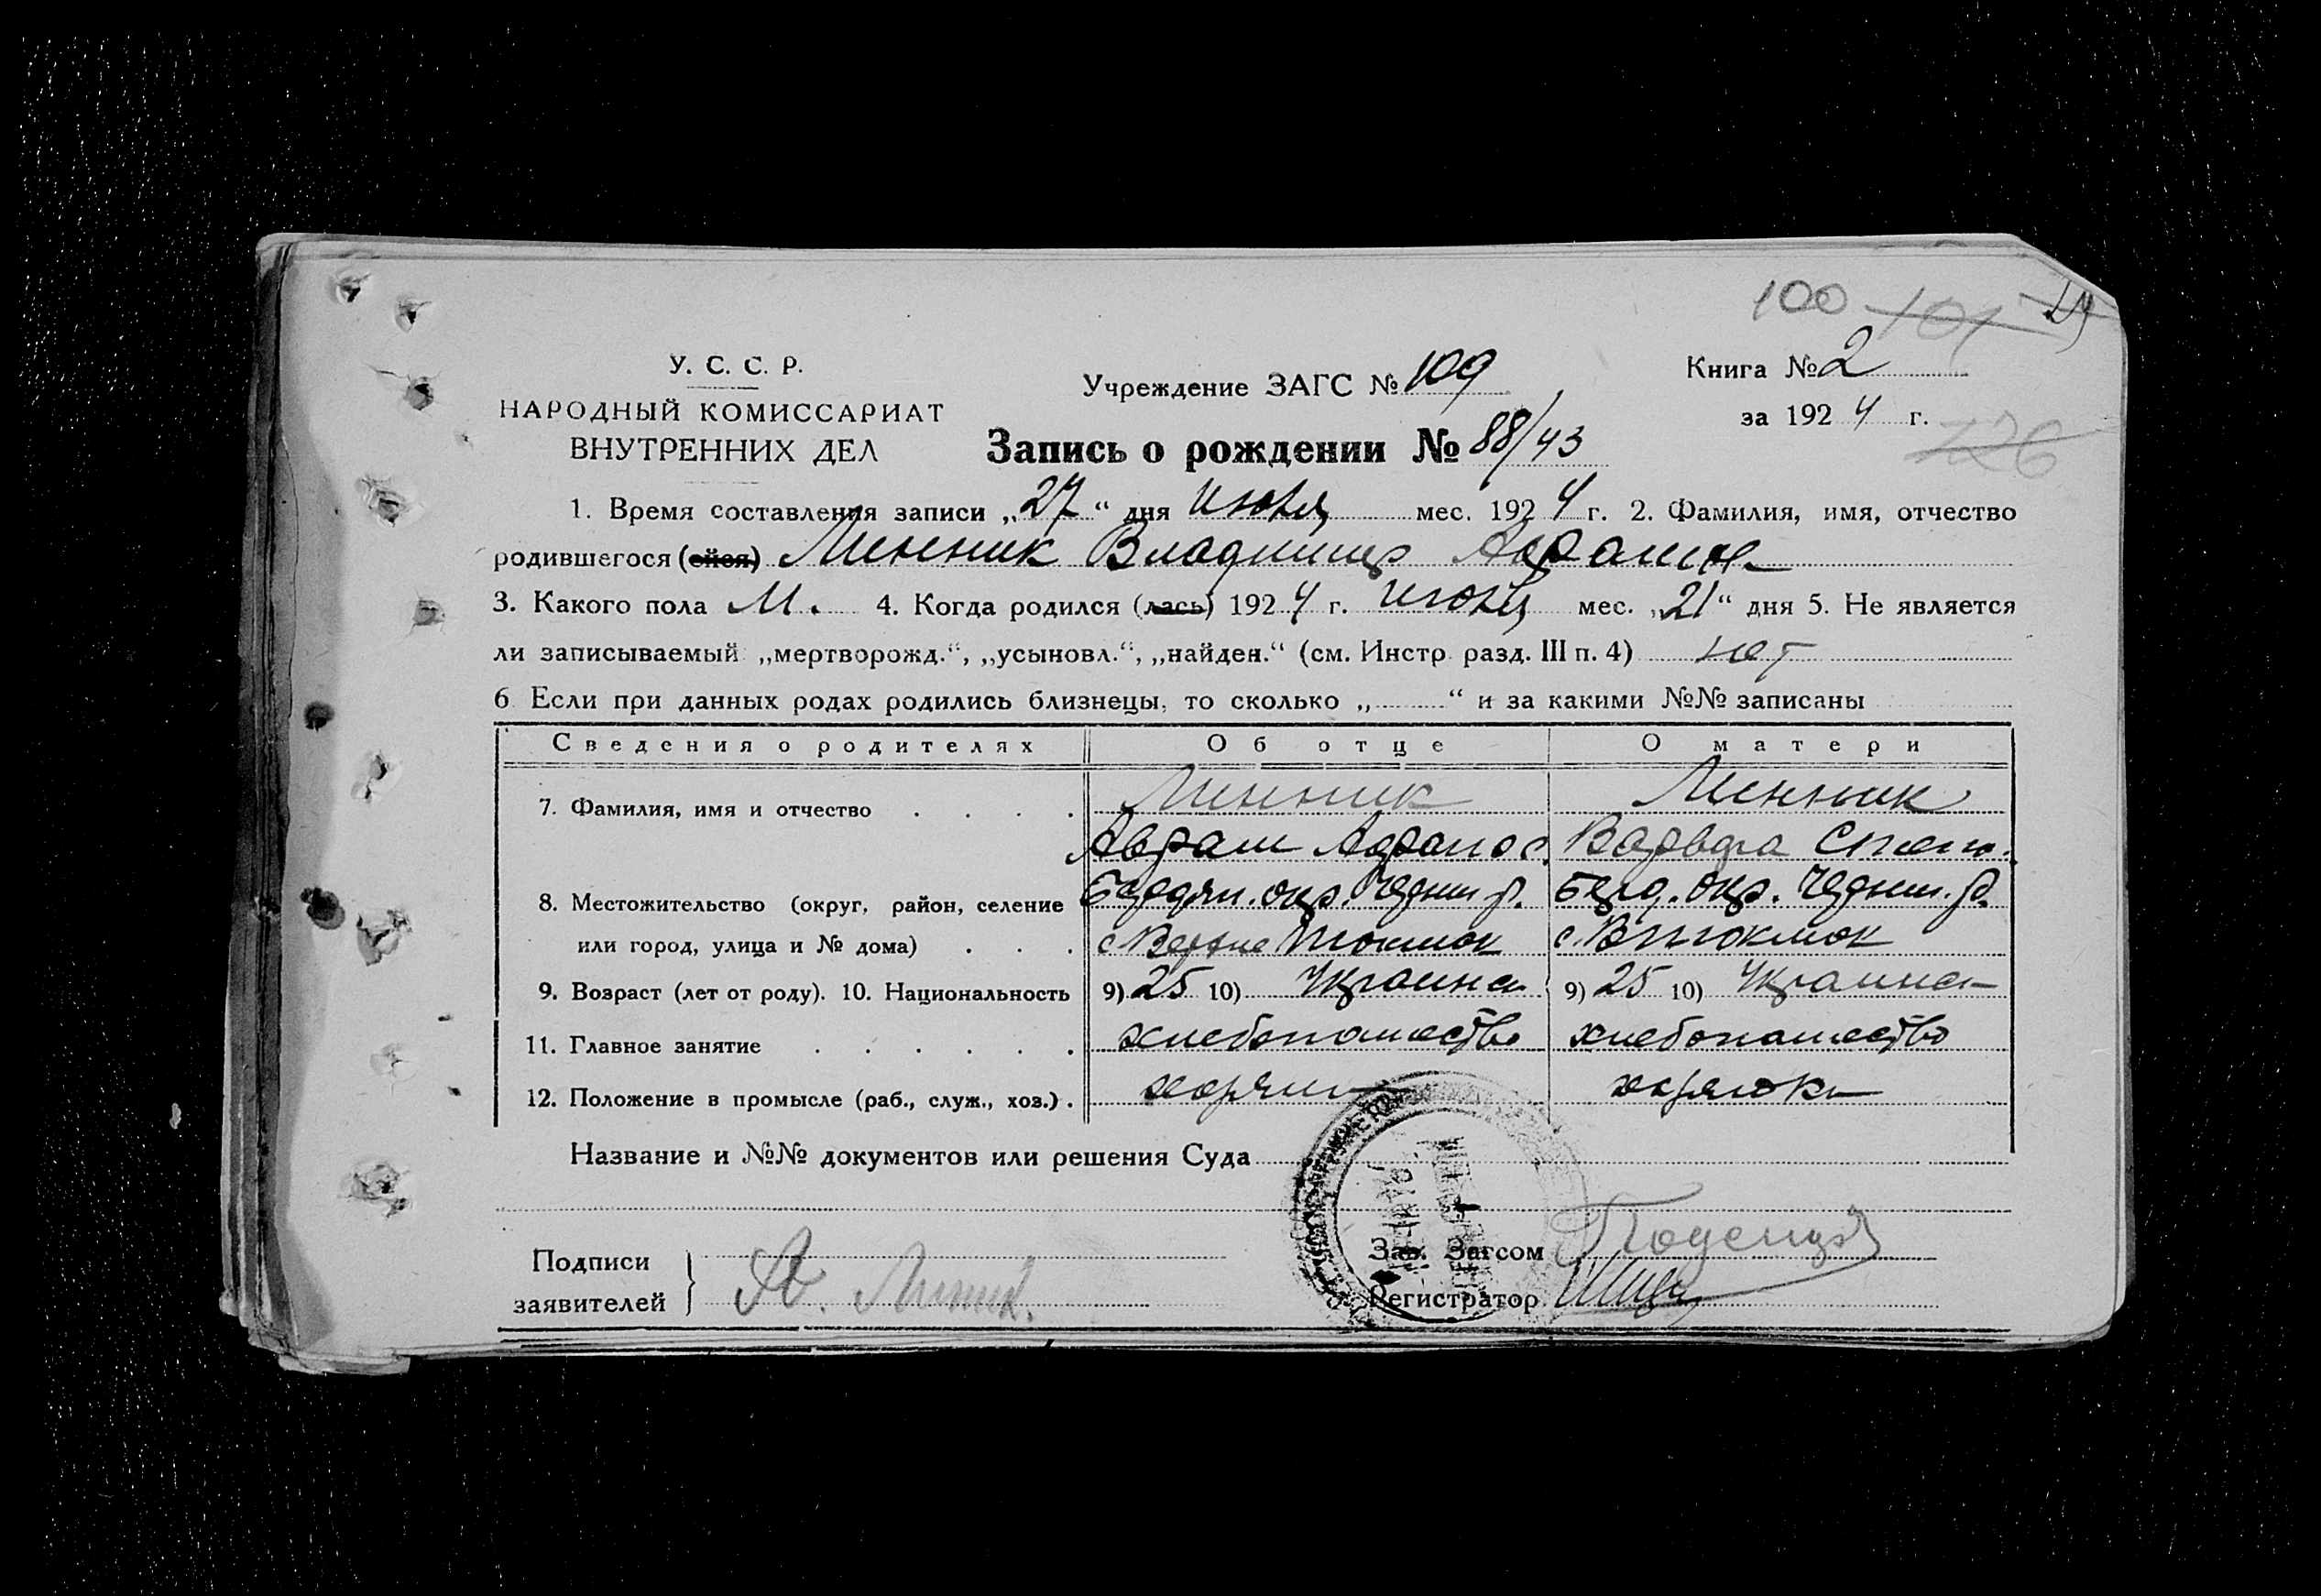 100 101
У. С. С. Р.
НАРОДНЫЙ КОМИССАРИАТ
ВНУТРЕННИХ ДЕЛ
Учреждение ЗАГС № 109
Книга № 2
за 1924 г.
126
Запись о рождении № 88/43
1. Время составления записи „27“ дня Июля мес. 1924 г. 2. Фамилия, имя, отчество
родившегося (ейся) Минник Владимир Аврамов
3. Какого пола М. 4. Когда родился (лась) 1924 г. мес. „21“ дня 5. Не является
ли записываемый „мертворожд.“, „усыновл.“, „найден.“ (см. Инстр. разд. III п. 4) нет
6 Если при данных родах родились близнецы, то сколько „ “ и за какими №№ записаны
Сведения о родителях Об отце О матери
7. Фамилия, имя и отчество Минник Минник
Аврам Варвара
8. Местожительство (округ, район, селение Бердян. окр. Черниг. р. Берд. окр. Черниг. р.
или город, улица и № дома) с Верхне Токмок с. В Токмок
9. Возраст (лет от роду). 10. Национальность 9) 25 10) Украин 9) 25 10) Украин
11. Главное занятие хлебопашество хлебопашество
12. Положение в промысле (раб., служ., хоз.)
Название и №№ документов или решения Суда
Подписи
заявителей А. Минник
Зав. Загсом
Регистратор